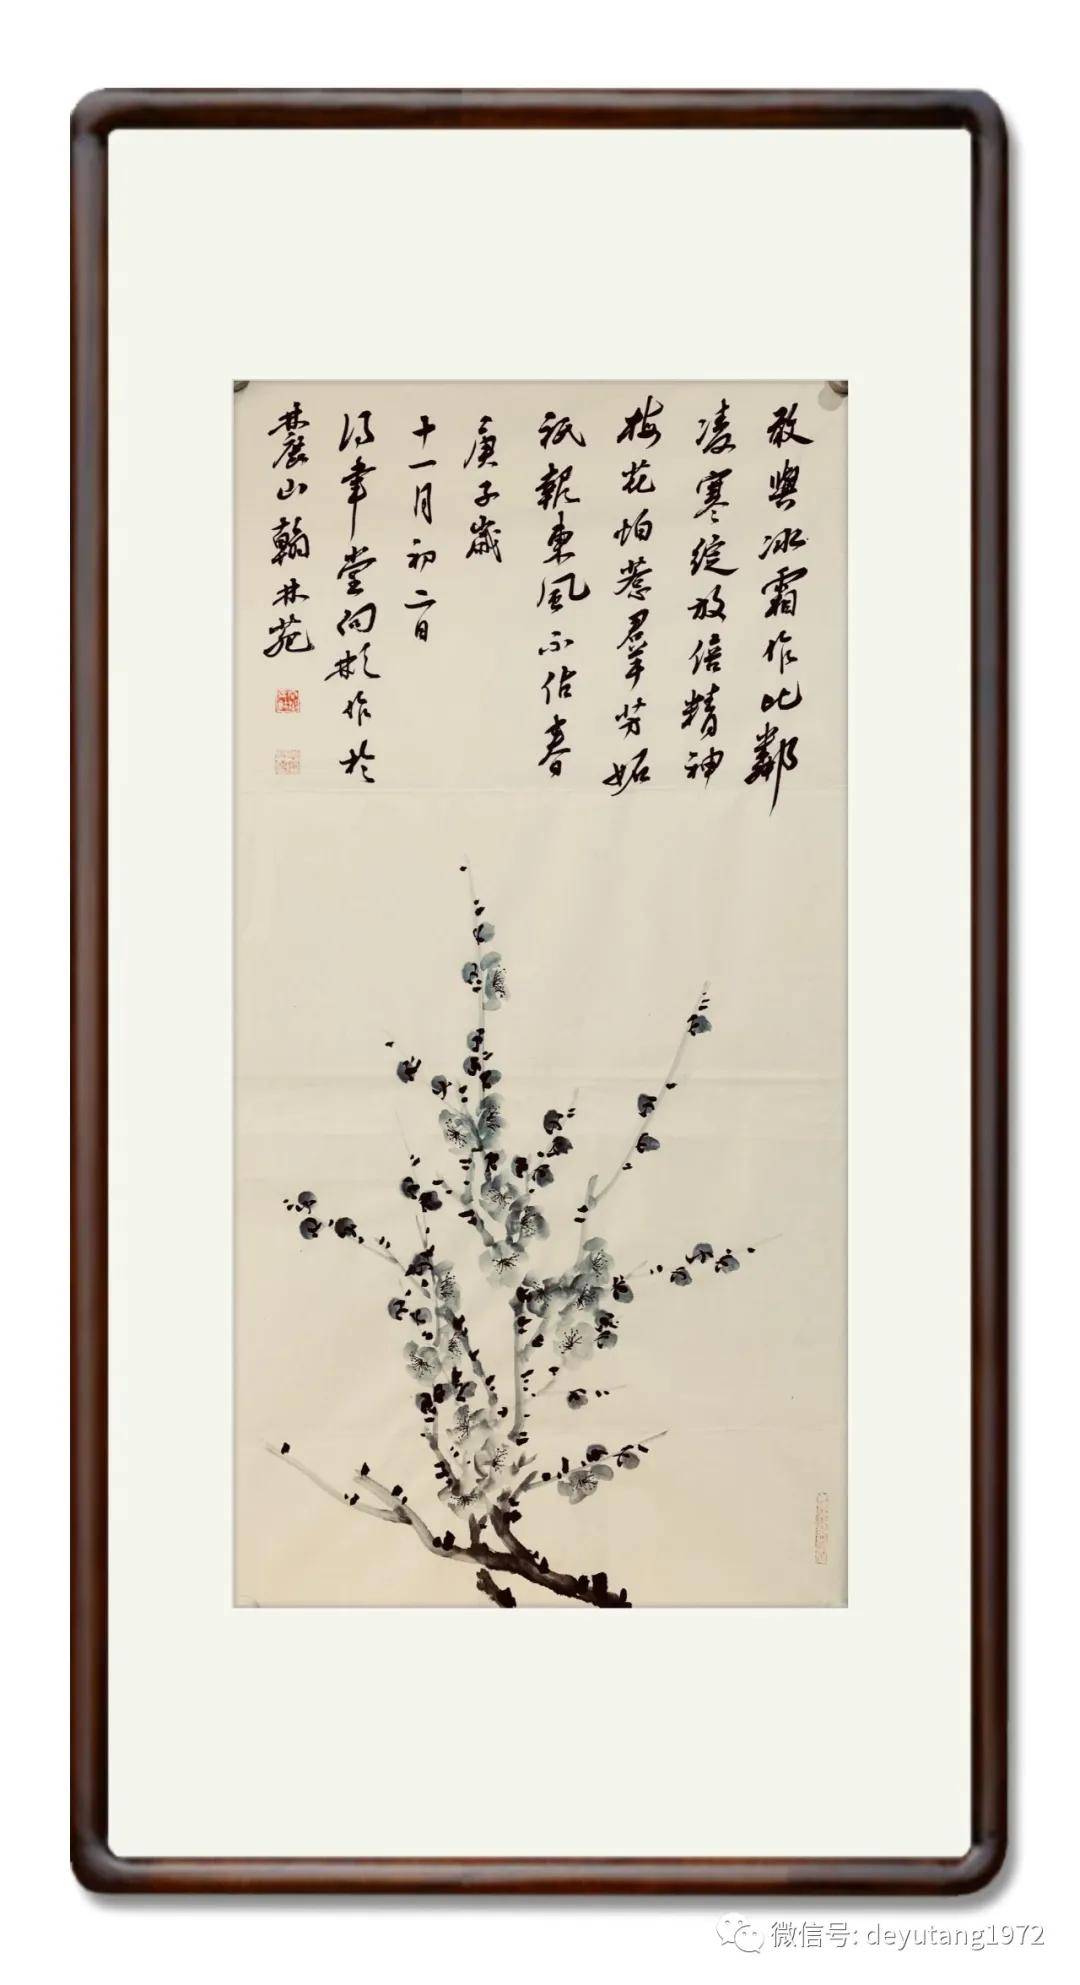 敢與冰霜作比鄰
凌寒綻放倍精神
梅花怕惹羣芳妬
祇報東風不佔春
庚子歲
十一月初二日
堂向彬作於
麓山翰林苑
微信号: deyutang1972